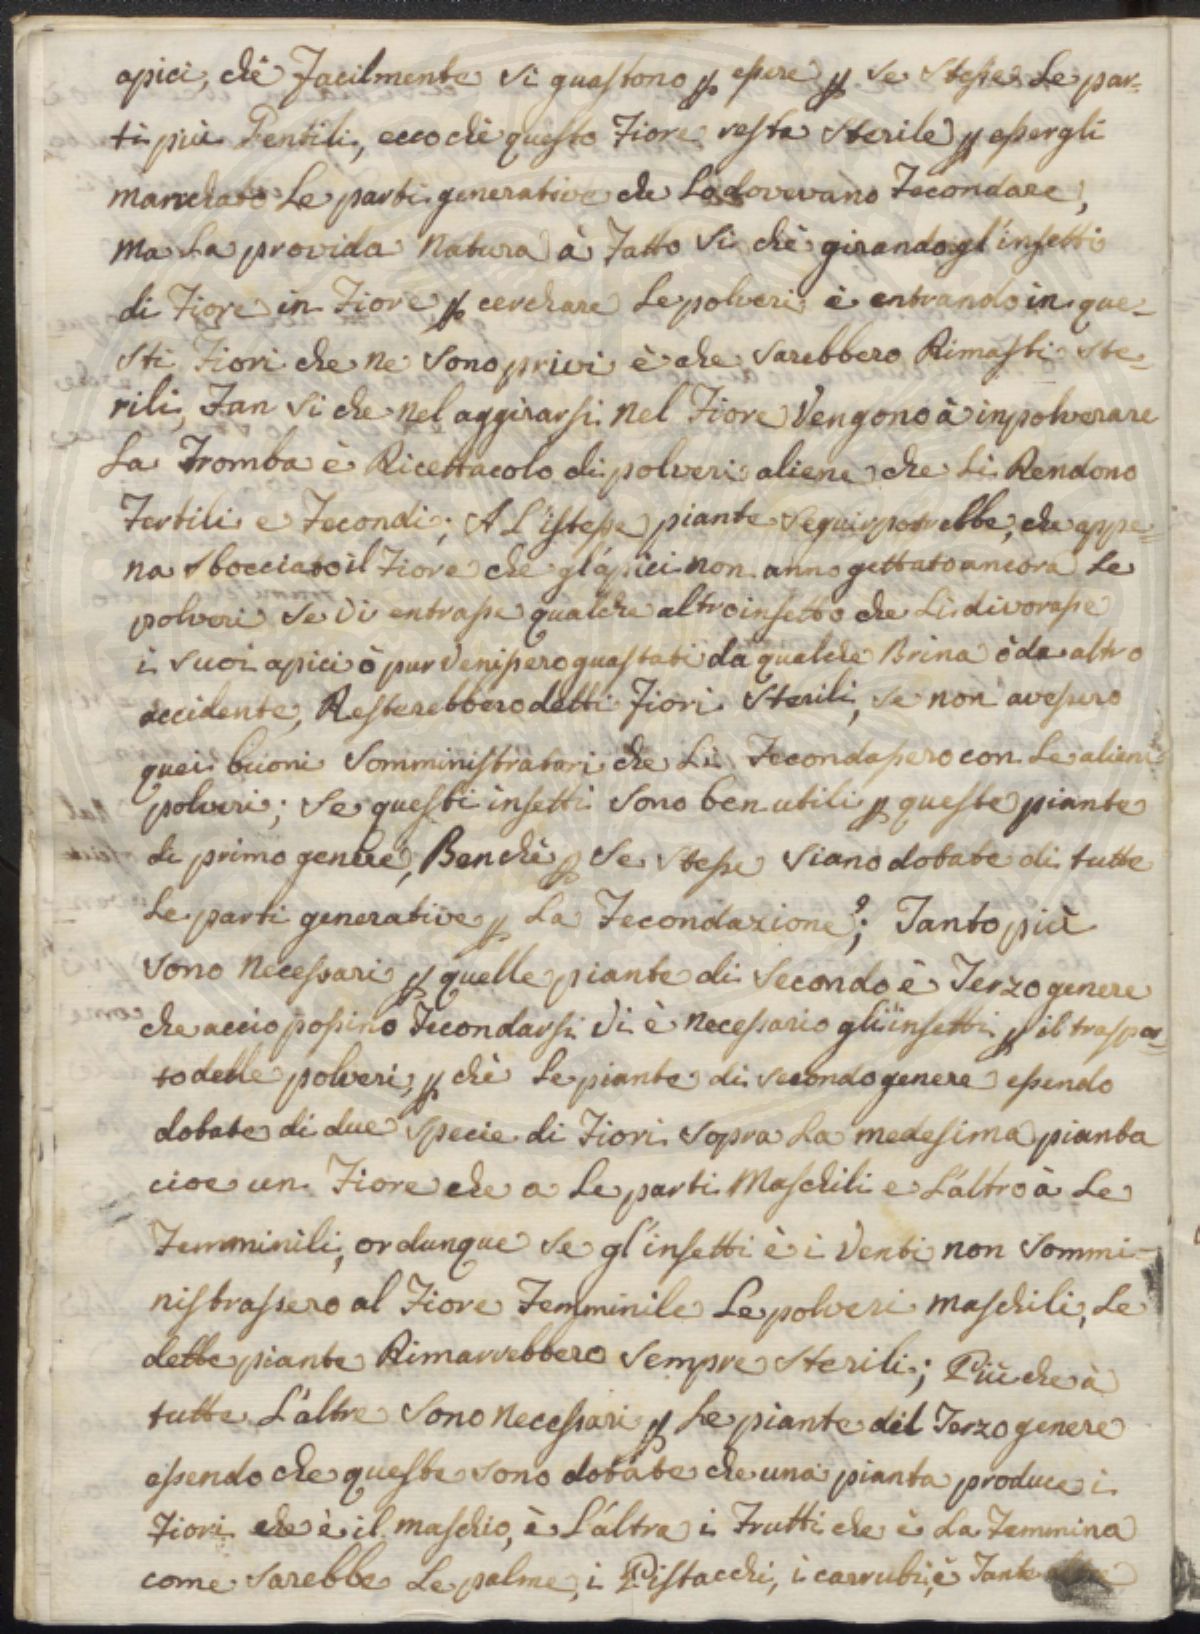 apici, chè facilmente si guastono p essere p se stesse Le par-
ti più Gentili, ecco chè questo Fiore resta Sterile p essergli
manchato Le parti generative che Lo dovevano Fecondare,
ma La provida Natura à Fatto Si chè girando gl'insetti
di Fiore in Fiore p cerchare Le polveri è entrando in que-
sti Fiori che ne sono privi è che Sarebbero Rimasti ste-
rili, Fan si che nel aggirarsi nel Fiore Vengono à inpolverare
La Tromba è Ricettacolo di polveri aliene che Li Rendono
Fertili e Fecondi; A L'istesse piante Seguir potrebbe, che appe-
na sbocciato il Fiore che gl'apici non anno gettato ancora Le
polveri se vi entrasse qualche altro insetto che Li divorasse
i suoi apici ò pur Venissero guastati da qualche Brina ò da altro
accidente, Resterebbero detti Fiori Sterili, se non avessero
quei buoni Somministratori che Li Fecondassero con Le aliene
polveri; Se questi insetti sono ben utili p queste piante
di primo genere, Benchè p se stesse siano dotate di tutte
Le parti generative p La Fecondazione?; Tanto più
sono necessari p quelle piante di secondo è Terzo genere
che accio possino Fecondarsi Vi è necessario gli insetti p il traspor-
to delle polveri, p chè Le piante di secondo genere essendo
dotate di due Specie di Fiori sopra La medesima pianta
cioe un Fiore che a Le parti Maschili e L'altro à Le
Femminili, or dunque se gl'insetti è i Venti non sommi-
nistrassero al Fiore Femminile Le polveri maschili, Le
dette piante Rimarrebbero Sempre Sterili; Più che à
tutte L'altre Sono necessari p Le piante del Terzo genere
essendo che queste sono dotate che una pianta produce i
Fiori che è il maschio, è L'altra i Frutti che è La Femmina
come sarebbe Le palme, i Pistacchi, i carrubi, è Tante altre